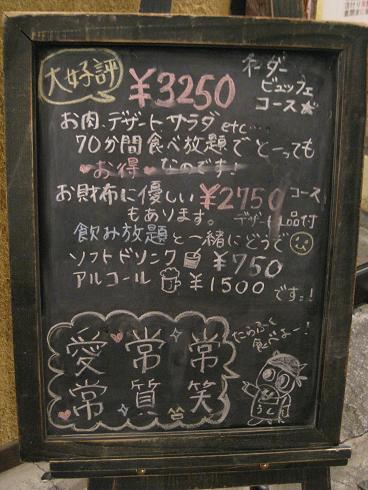 大好評
¥3250
オーダー
ビュッフェ
コース
お肉、デザートサラダ etc...
70分間食べ放題でとっても
お得なのです!
お財布に優しい ¥2750 コース
もあります。 デザート1品付
飲み放題と一緒にどうぞ
ソフトドリンク ¥750
アルコール ¥1500 です!
たらふく
食べよー!
愛 常 常
常 質 笑
うし